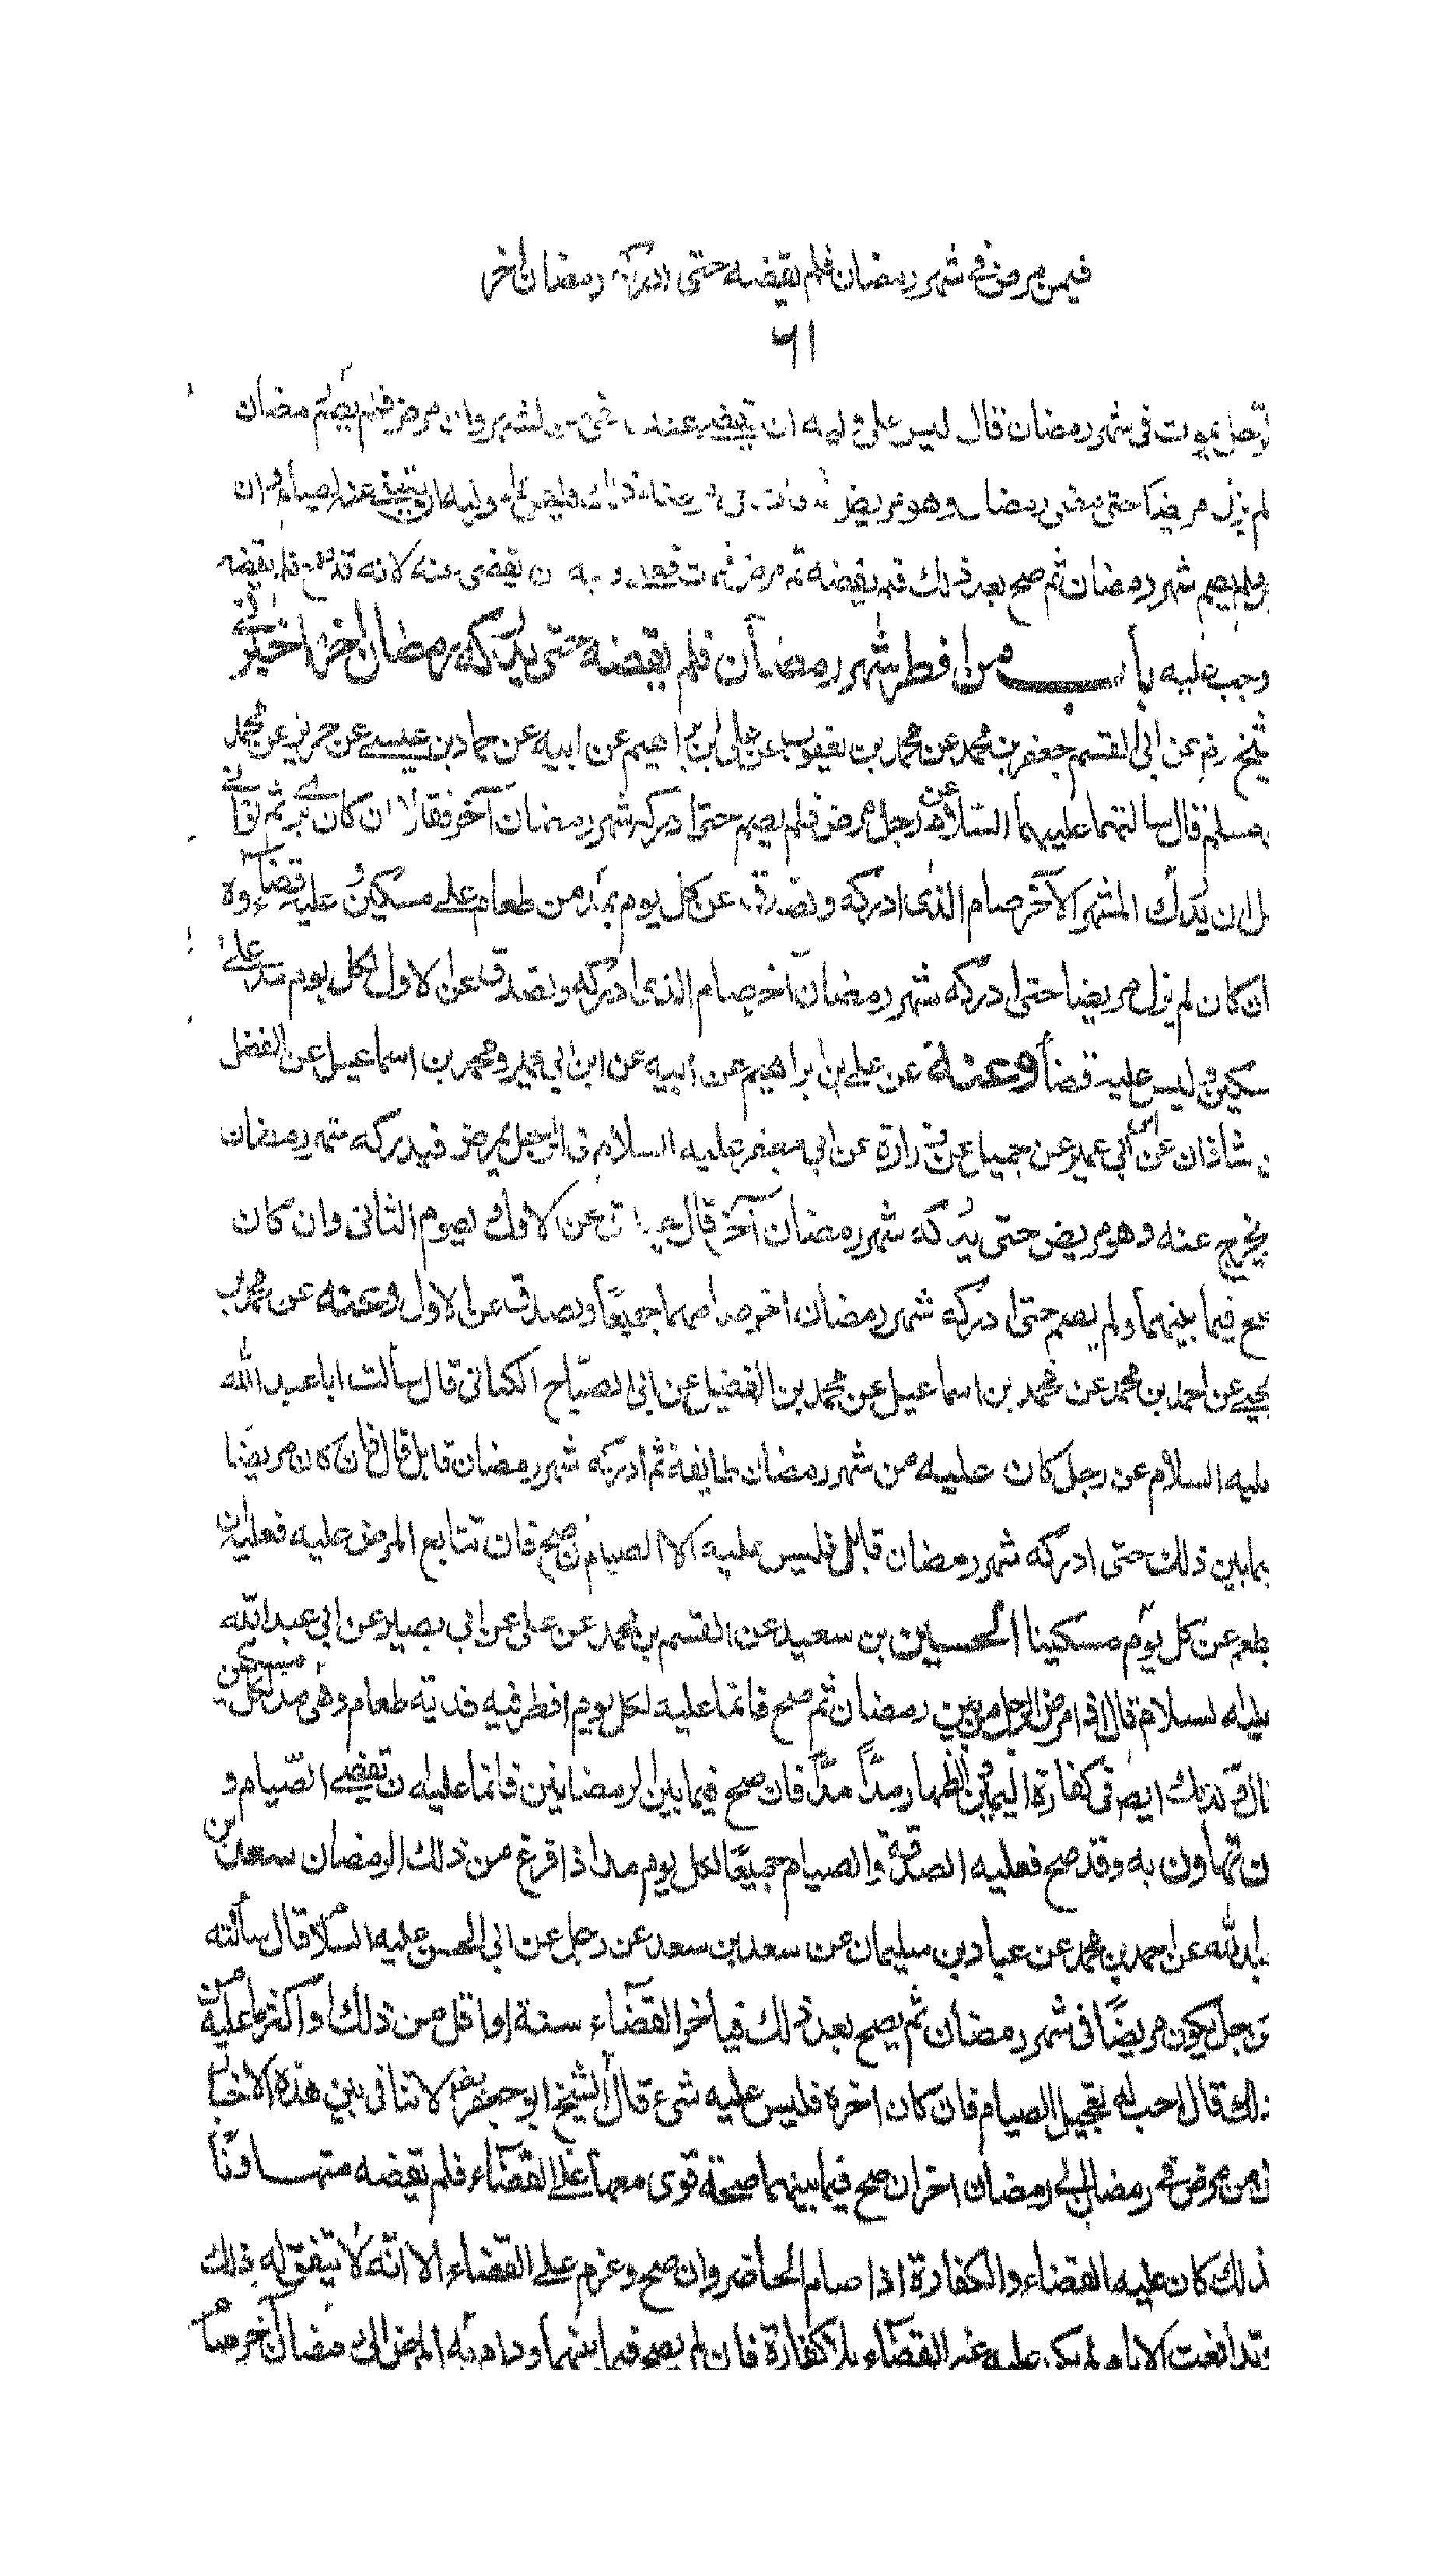 فيمن مرض في شهر رمضان فلم يقضه حتى ادركه رمضان آخر
٦١
الرجل يموت في شهر رمضان قال ليس على وليه ان يقضى عنه من الشهر وان مرض فلم يصم رمضان
لم يزل مريضا حتى مضى رمضان وهو مريض ثم مات في مرضه ذلك فليس على وليه ان يقضى عنه الصيام وان
ولم يصم شهر رمضان ثم صح بعد ذلك فلم يقضه ثم مرض فمات فعلى وليه ان يقضى عنه لانه قد صح فلم يقضه
وجب عليه باب من افطر شهر رمضان فلم يقضه حتى يدركه رمضان اخر اخبرني
شيخ ره عن ابى القسم جعفر بن محمد عن محمد بن يعقوب عن على ابن ابراهيم عن ابيه عن حماد بن عيسى عن حريز عن محمد
مسلم قال سالتهما عليهما السلام عن رجل مرض فلم يصم حتى ادركه شهر رمضان آخر فقالا ان كان برئ ثم توانى
بل ان يدرك الشهر الآخر صام الذى ادركه وتصدق عن كل يوم بمد من طعام على مسكين وعليه قضاءه
ان كان لم يزل مريضا حتى ادركه شهر رمضان آخر صام الذى ادركه وتصدق عن الاول لكل يوم مد على
سكين وليس عليه قضاء وعنه عن على بن ابراهيم عن ابيه عن ابن ابي عمير ومحمد بن اسماعيل عن الفضل
ن شاذان عن ابن ابي عمير عن جميل عن زرارة عن ابي جعفر عليه السلام في الرجل يمرض فيدركه شهر رمضان
يخرج عنه وهو مريض حتى يدركه شهر رمضان آخر قال يتصدق عن الاول ويصوم الثانى وان كان
صح فيما بينهما ولم يصم حتى ادركه شهر رمضان اخر صامهما جميعًا وتصدق عن الاول وعنه عن محمد بن
يحيى عن احمد بن محمد عن محمد بن اسماعيل عن محمد بن الفضيل عن ابى الصبّاح الكنانى قال سألت ابا عبد الله
عليه السلام عن رجل كان عليه من شهر رمضان طايفة ثم ادركه شهر رمضان قابل قال فان كان مريضا
يما بين ذلك حتى ادركه شهر رمضان قابل فليس عليه الا الصيام ان صح فان تتابع المرض عليه فعليه ان
يطعم عن كل يوم مسكينا الحسين بن سعيد عن القسم بن محمد عن على عن ابي بصير عن ابي عبد الله
عليه السلام قال اذا مرض الرجل من رمضان الى رمضان ثم صح فانما عليه لكل يوم افطر فيه فدية طعام وهى مد لكل مسكين
قال وكذلك ايضا فى كفارة اليمين وكفارة الظهار مدًّا مدًّا فان صح فيما بين الرمضانين فانما عليه ان تقضى الصّيام و
ن تهاون به وقد صح فعليه الصدقة والصيام جميعًا لكل يوم مد اذا فرغ من ذلك الرمضان سعد بن
عبد الله عن احمد بن محمد عن عباد بن سليمان عن سعد بن سعد عن رجل عن ابى الحسن عليه السلام قال سألته
عن رجل يكون مريضًا فى شهر رمضان ثم يصح بعد ذلك فيأخر القضاء سنة او اقل من ذلك او اكثر ما عليه من
ذلك قال احب له تعجيل الصيام فان كان اخره فليس عليه شيء قال الشيخ ابو جعفر لا تنافى بين هذه الاخبار
ن من مرض في رمضان الى رمضان اخر ان صح فيما بينهما صحة قوى معها على القضاء فلم يقضه متهاونًا
ذلك كان عليه القضاء والكفارة اذا صام الحاضر وان صح وعزم على القضاء الا انّه لا يتفق له ذلك
وتدافعت الايام لم يكن عليه غير القضاء بلا كفارة فان لم يصح فيما بينهما ودام به المرض الى رمضان آخر صام